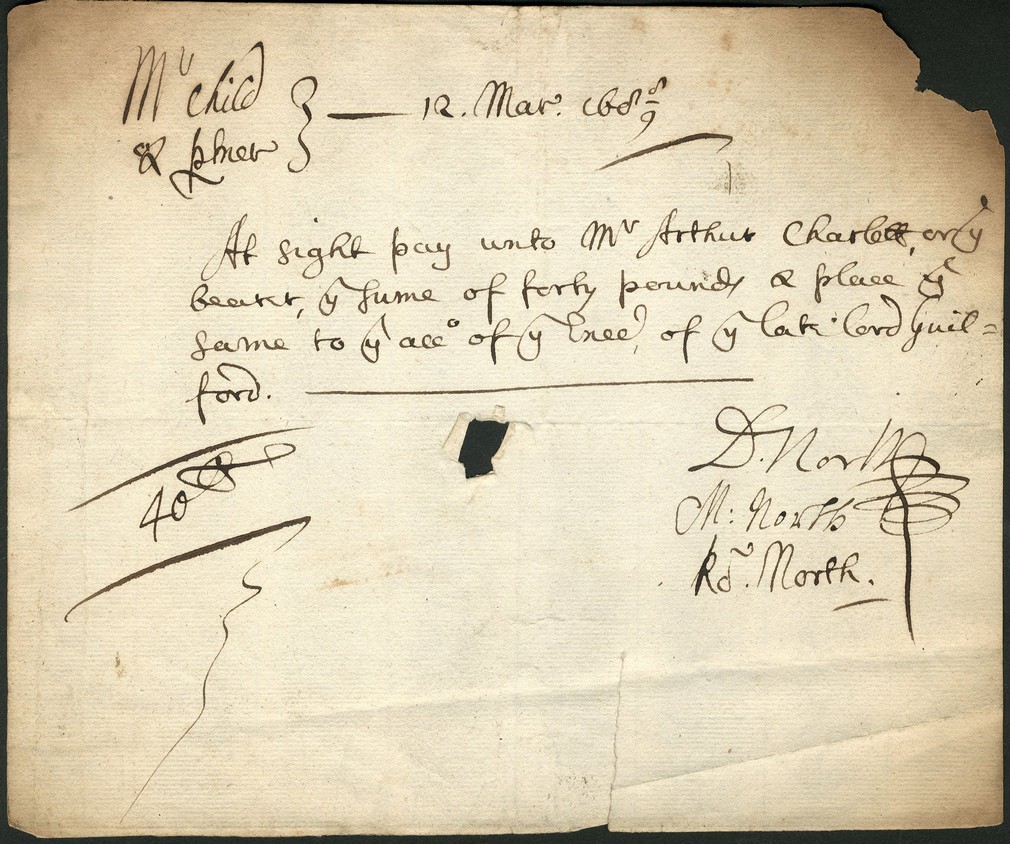 Mr Child } — 12. Mar. 168 8/9
& ptner
At sight pay unto Mr Arthur Charlett, or ye
bearer, ye sume of forty pounds & place ye
same to ye acco of ye of ye late Lord Guil=
ford.
40
D. North
M: North
Ro. North.